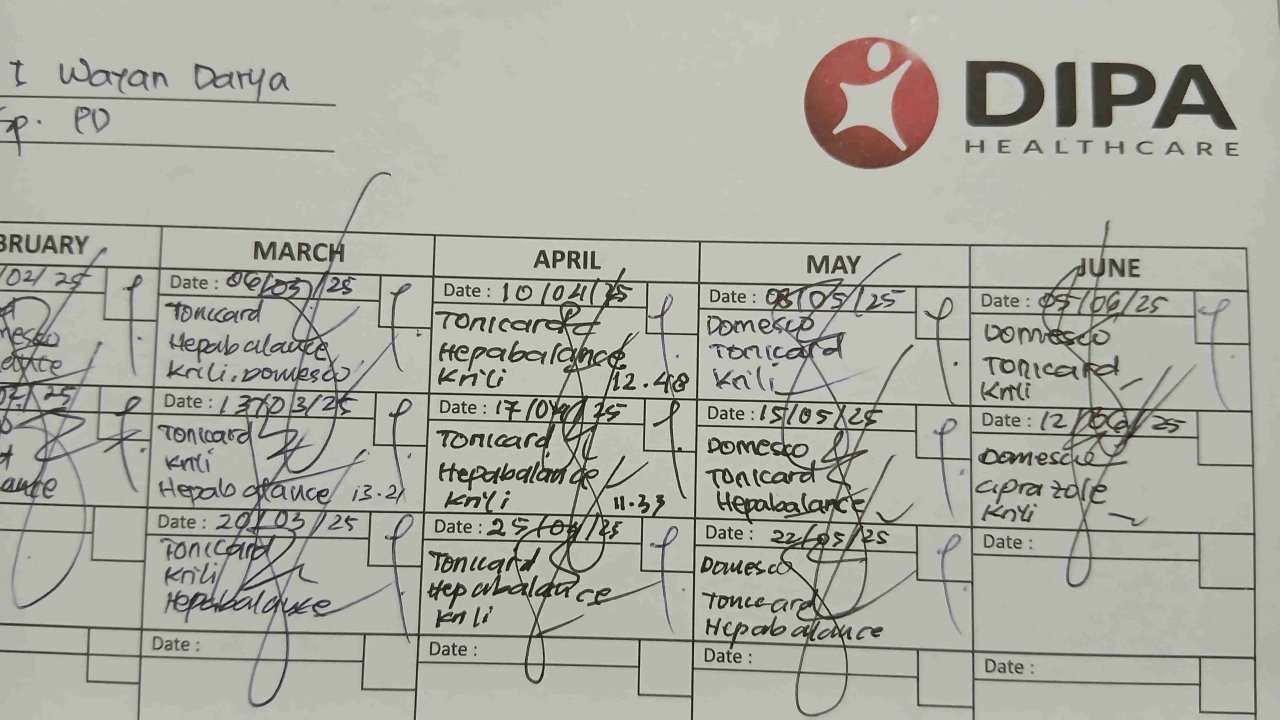 I Wayan Darya
Sp. PD
DIPA
HEALTHCARE
BRUARY
MARCH
APRIL
MAY
JUNE
/02/25
Date : 06/03/25
Tonicard
Hepabalance
Krili, Domesco
Date : 10/04/25
Tonicard
Hepabalance
Krili 12.48
Date : 08/05/25
Domesco
Tonicard
Krili
Date : 05/06/25
Domesco
Tonicard
Krili
Date : 13/03/25
Tonicard
Krili
Hepabalance 13.21
Date : 17/04/25
Tonicard
Hepabalance
Krili 11.33
Date : 15/05/25
Domesco
Tonicard
Hepabalance
Date : 12/06/25
Domesco
Ciprazole
Krili
Date : 20/03/25
Tonicard
Krili
Hepabalance
Date : 25/04/25
Tonicard
Hepabalance
Krili
Date : 22/05/25
Domesco
Tonicard
Hepabalance
Date :
Date :
Date :
Date :
Date :